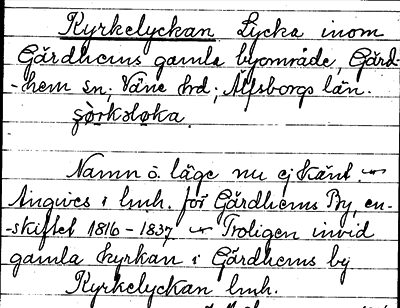 Kyrkelyckan Lycka inom
Gärdhems gamla byområde, Gärd-
-hem sn; Väne hd; Älfsborgs län.
Namn o. läge nu ej känt.
Angives i lmh. för Gärdhems By, en-
-skiftet 1816-1837. Troligen invid
gamla kyrkan i Gärdhems by
Kyrkelyckan lmh.